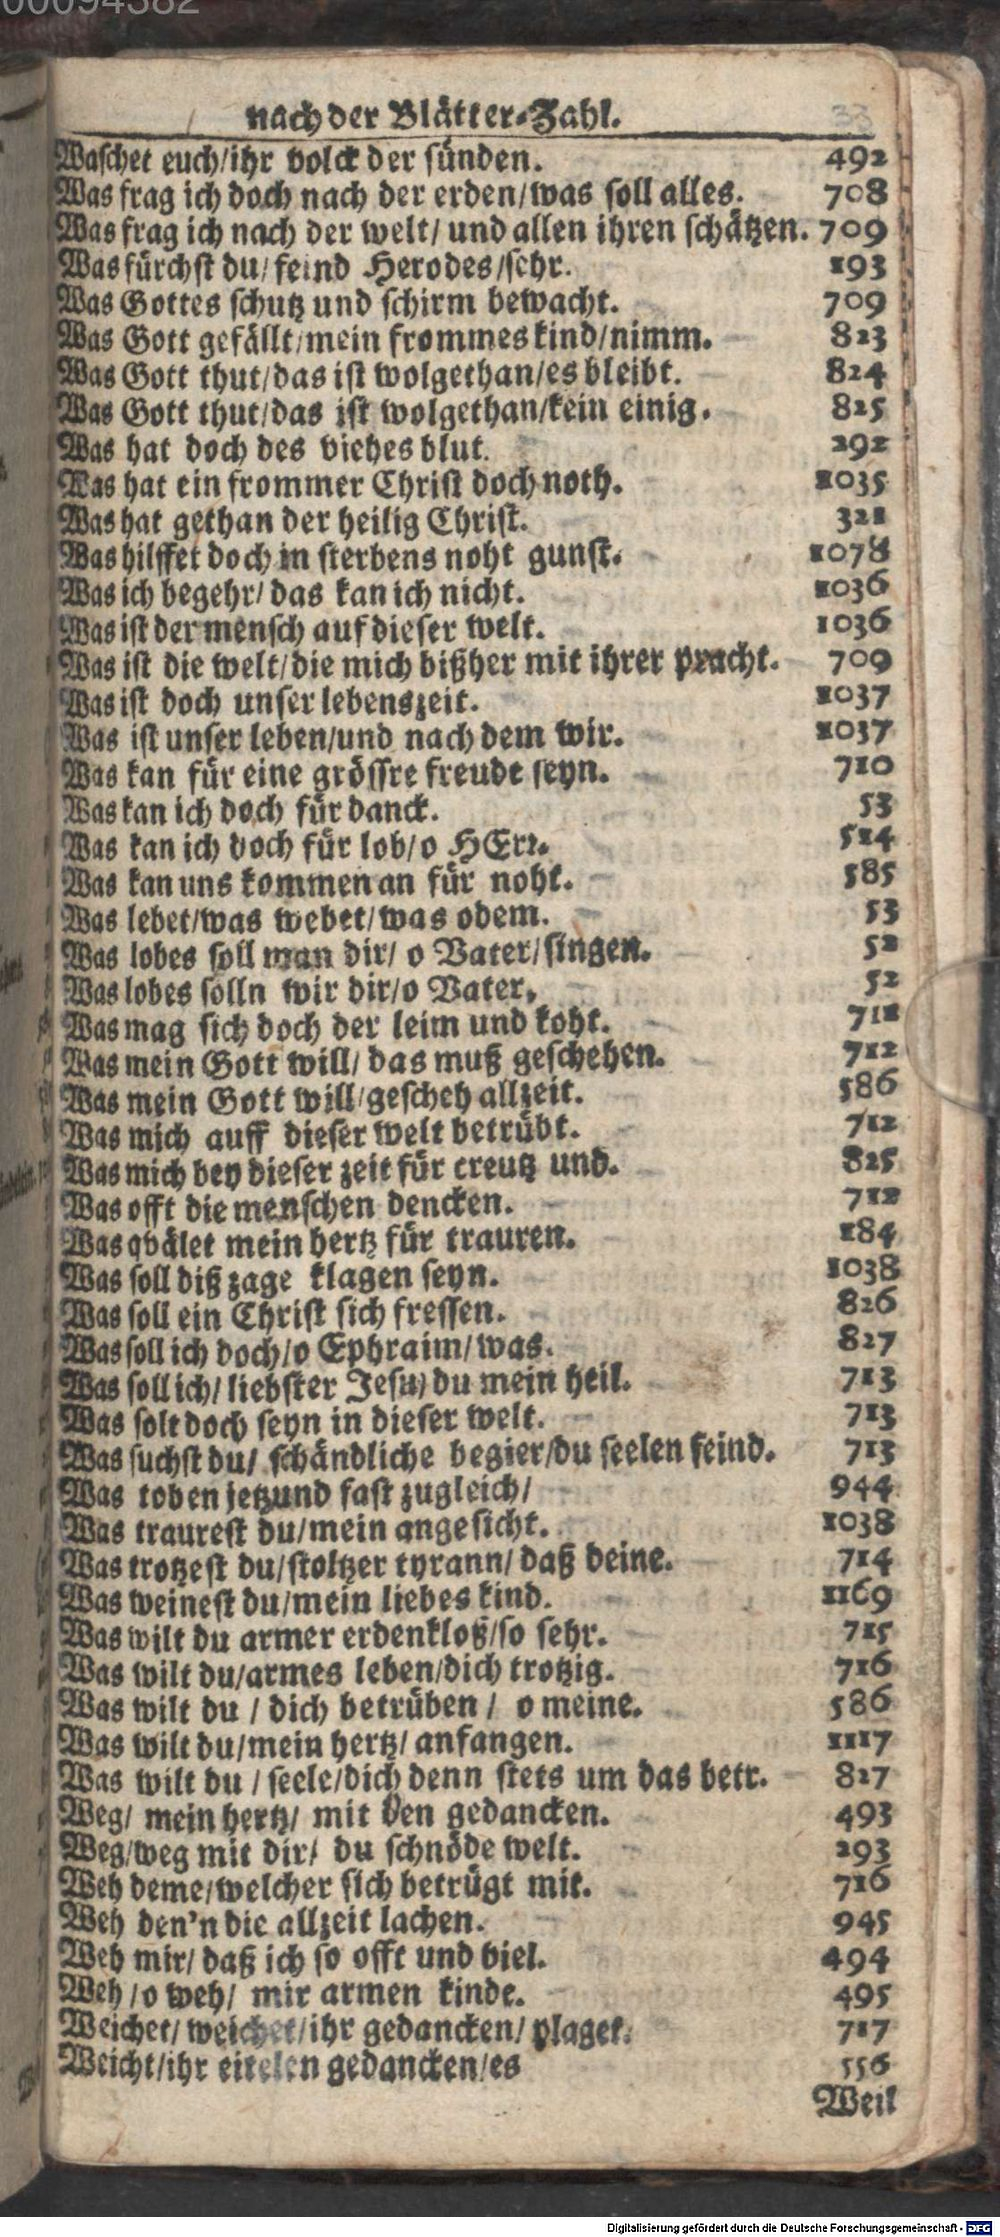 00094382
nach der Blätter-Zahl. 33
Waschet euch/ihr volck der sünden. 492
Was frag ich doch nach der erden/was soll alles. 708
Was frag ich nach der welt/ und allen ihren schätzen. 709
Was fürchst du/ feind Herodes/sehr. 193
Was Gottes schutz und schirm bewacht. 709
Was Gott gefällt/mein frommes kind/nimm. 823
Was Gott thut/das ist wolgethan/es bleibt. 824
Was Gott thut/das ist wolgethan/kein einig. 825
Was hat doch des viehes blut. 292
Was hat ein frommer Christ doch noth. 1035
Was hat gethan der heilig Christ. 321
Was hilffet doch in sterbens noht gunst. 1078
Was ich begehr/ das kan ich nicht. 1036
Was ist der mensch auf dieser welt. 1036
Was ist die welt/die mich bißher mit ihrer pracht. 709
Was ist doch unser lebenszeit. 1037
Was ist unser leben/und nach dem wir. 1037
Was kan für eine grössre freude seyn. 710
Was kan ich doch für danck. 53
Was kan ich doch für lob/o HErr. 514
Was kan uns kommen an für noht. 585
Was lebet/was webet/was odem. 53
Was lobes soll man dir/ o Vater/singen. 52
Was lobes solln wir dir/o Vater, 52
Was mag sich doch der leim und koht. 711
Was mein Gott will/ das muß geschehen. 712
Was mein Gott will/gescheh allzeit. 586
Was mich auff dieser welt betrübt. 712
Was mich bey dieser zeit für creutz und. 825
Was offt die menschen dencken. 712
Was qvälet mein hertz für trauren. 184
Was soll diß zage klagen seyn. 1038
Was soll ein Christ sich fressen. 826
Was soll ich doch/o Ephraim/was. 827
Was soll ich/ liebster Jesu/ du mein heil. 713
Was solt doch seyn in dieser welt. 713
Was suchst du/ schändliche begier/du seelen feind. 713
Was toben jetzund fast zugleich/ 944
Was traurest du/mein angesicht. 1038
Was trotzest du/stoltzer tyrann/ daß deine. 714
Was weinest du/mein liebes kind. 1169
Was wilt du armer erdenkloß/so sehr. 715
Was wilt du/armes leben/dich trotzig. 716
Was wilt du / dich betrüben / o meine. 586
Was wilt du/mein hertz/ anfangen. 1117
Was wilt du / seele/dich denn stets um das betr. 827
Weg/ mein hertz/ mit den gedancken. 493
Weg/weg mit dir/ du schnöde welt. 293
Weh deme/welcher sich betrügt mit. 716
Weh den'n die allzeit lachen. 945
Weh mir/ daß ich so offt und viel. 494
Weh /o weh/ mir armen kinde. 495
Weichet/ weichet/ihr gedancken/ plaget. 717
Weicht/ihr eitelen gedancken/es 556
Weil
Digitalisierung gefördert durch die Deutsche Forschungsgemeinschaft - DFG